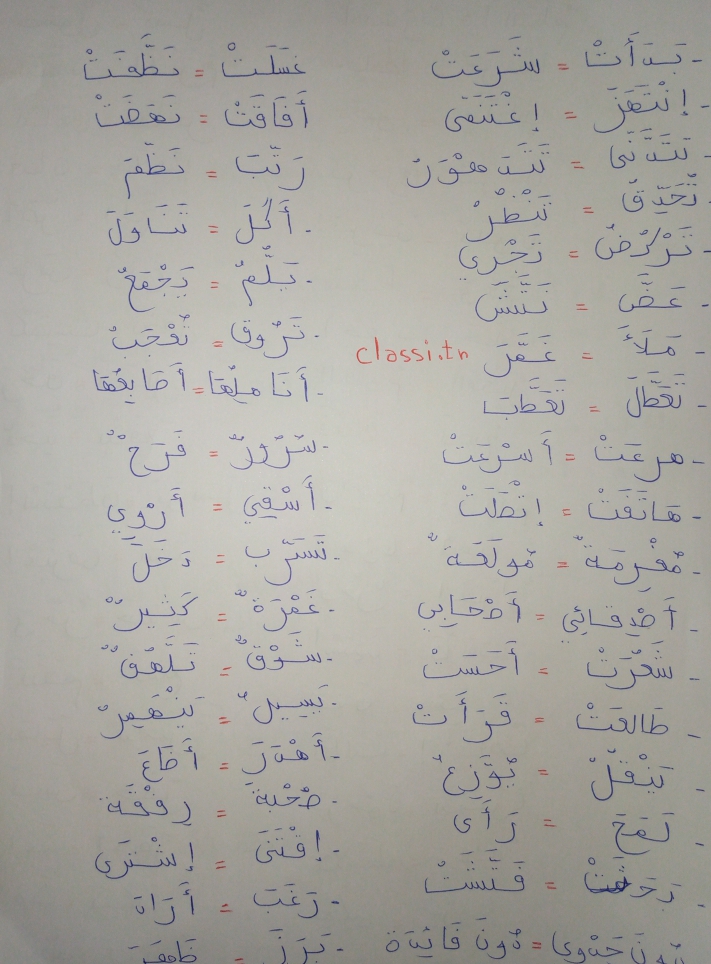 - بَدَأَتْ = شَرَعَتْ
- إِنْتَهَزَ = إِغْتَنَمَى
- تَتَدَنَّى = تَتَدَهْوَرُ
- تُحَدِّقُ = تَنْظُرُ
- تَرْكُضُ = تَجْرِي
- عَضَّ = نَتَّشَ
- مَلَأَ = غَمَّرَ classi.tn
- تَعَطَّلَ = تَعَطَّبَ
- هرعَتْ = أَسْرَعَتْ
- هَاتَفَتْ = إِتَّصَلَتْ
- مُغْرِمَةٌ = مُولَعَةٌ
- أَصْدِقَائِي = أَصْحَابِي
- شَعُرَتْ = أَحَسَتْ
- طَالعَتْ = قَرَأَتْ
- يَنْقُلُ = يُوَزِعُ
- لَمَحَ = رَأَى
- بَحَثَتْ = فَتَّشَتْ
دُونَ جَدْوى = دُونَ فَائِدَة
غسَلَتْ = نَظَّفَتْ
أَفَاقَتْ = نَهَضَتْ
رَتَّبَ = نَظَّمَ
- أَكَلَ = تَنَاوَلَ
- يَلُمُّ = يَجْمَعُ
- تَرُوقُ = تُعْجِبُ
- أَنَامِلُهَا = أَصَابِعُهَا
- سُرُورٌ = فَرَحٌ
- أَسْقِي = أَرْوِي
- تَسَرَّب = دَخَلَ
- غَمْرَةٌ = كَثِيرٌ
- شَوْقٌ = تَلَهُّفٌ
- يَسِيلُ = يَنْهَمِرُ
- أَهْدَرَ = أَضَاعَ
- صُحْبَة = رِفْقَة
- إِقْتَنَى = إِشْتَرَى
- رَغَبَ = أَرَادَ
- بَرَزَ = ظَهَرَ